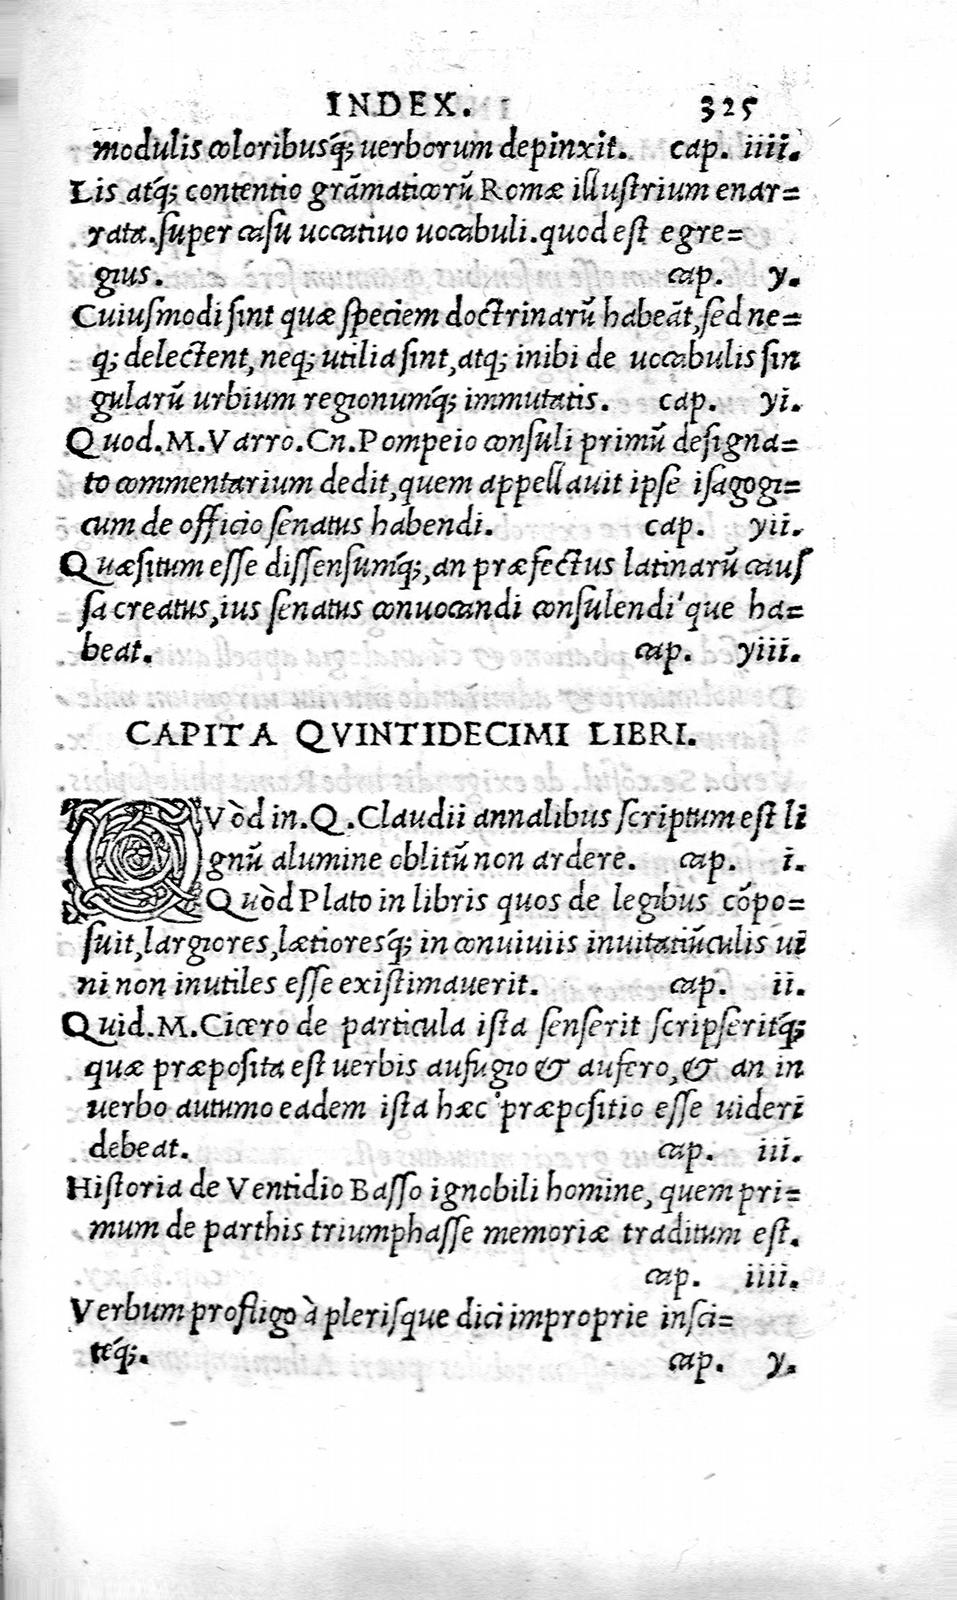 INDEX. 325
modulis coloribusq́; uerborum depinxit. cap. iiii.
Lis atq́; contentio grāmaticorū Romæ illuſtrium enar=
rata.ſuper caſu uocatiuo uocabuli.quod eſt egre=
gius. cap. y.
Cuiuſmodi ſint quæ ſpeciem doctrinarū habeāt,ſed ne=
q; delectent,neq; utilia ſint,atq; inibi de uocabulis ſin
gularū urbium regionumq́; immutatis. cap. yi.
Quod.M.Varro.Cn.Pompeio conſuli primū deſigna=
to commentarium dedit,quem appellauit ipſe iſagogi=
cum de officio ſenatus habendi. cap. yii.
Quæſitum eſſe diſſenſumq́;,an præfectus latinarū cauſ
ſa creatus,ius ſenatus conuocandi conſulendi'que ha=
beat. cap. yiii.
CAPITA QVINTIDECIMI LIBRI.
QVòd in.Q.Claudii annalibus ſcriptum eſt li
gnū alumine oblitū non ardere. cap. i.
Quòd Plato in libris quos de legibus cōpo=
ſuit,largiores,lætioresq́; in conuiuiis inuitatiūculis ui
ni non inutiles eſſe exiſtimauerit. cap. ii.
Quid.M.Cicero de particula iſta ſenſerit ſcripſeritq́;
quæ præpoſita eſt uerbis aufugio & aufero,& an in
uerbo autumo eadem iſta hæc præpoſitio eſſe uideri
debeat. cap. iii.
Hiſtoria de Ventidio Baſſo ignobili homine, quem pri=
mum de parthis triumphaſſe memoriæ traditum eſt.
cap. iiii.
Verbum profligo à pleriſque dici improprie inſci=
teq́;. cap. y.